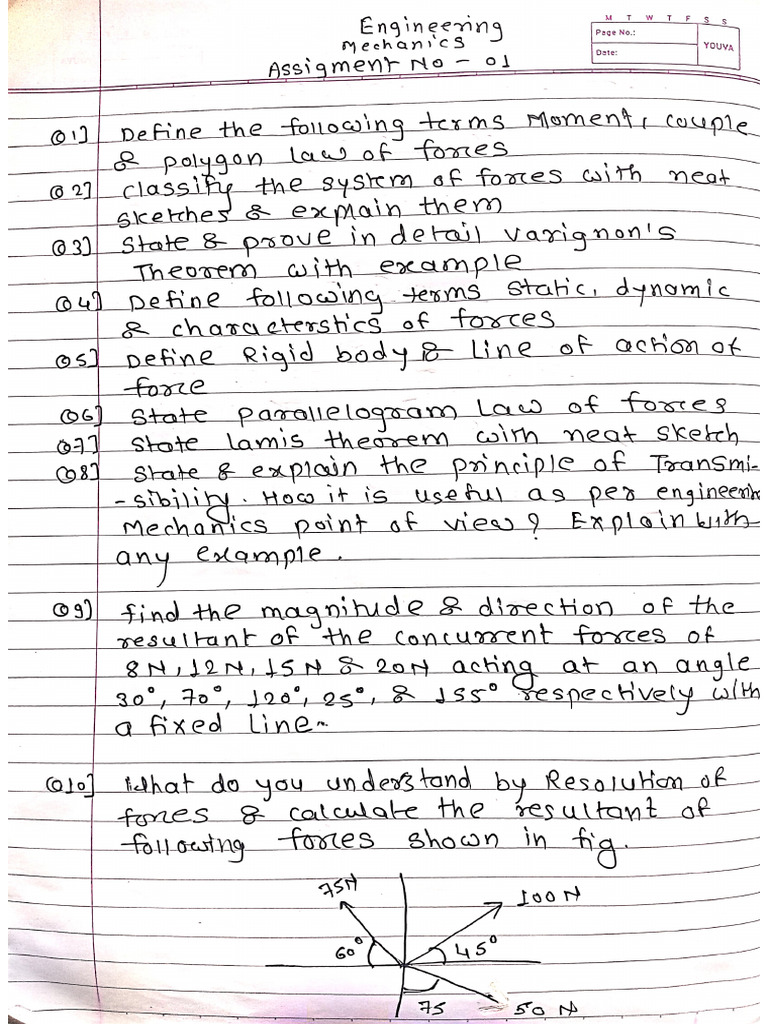 Engineering
Mechanics
Assigment No - 01
M T W T F S S
Page No.:
Date:
YOUVA
Q1] Define the following terms Moment, couple
& polygon law of forces
Q2] classify the system of forces with neat
sketches & explain them
Q3] State & prove in detail varignon's
Theorem with example
Q4] Define following terms static, dynamic
& characterstics of forces
Q5] Define Rigid body & line of action of
force
Q6] State parallelogram Law of forces
Q7] State lamis theorem with neat sketch
Q8] State & explain the principle of Transmi-
-sibility. How it is useful as per engineering
Mechanics point of view? Explain with
any example.
Q9] find the magnitude & direction of the
resultant of the concurrent forces of
8N, 12N, 15N & 20N acting at an angle
30°, 70°, 120°, 25°, & 155° respectively with
a fixed line.
Q10] What do you understand by Resolution of
forces & calculate the resultant of
following forces shown in fig.
75N
100 N
60°
45°
75
50 N